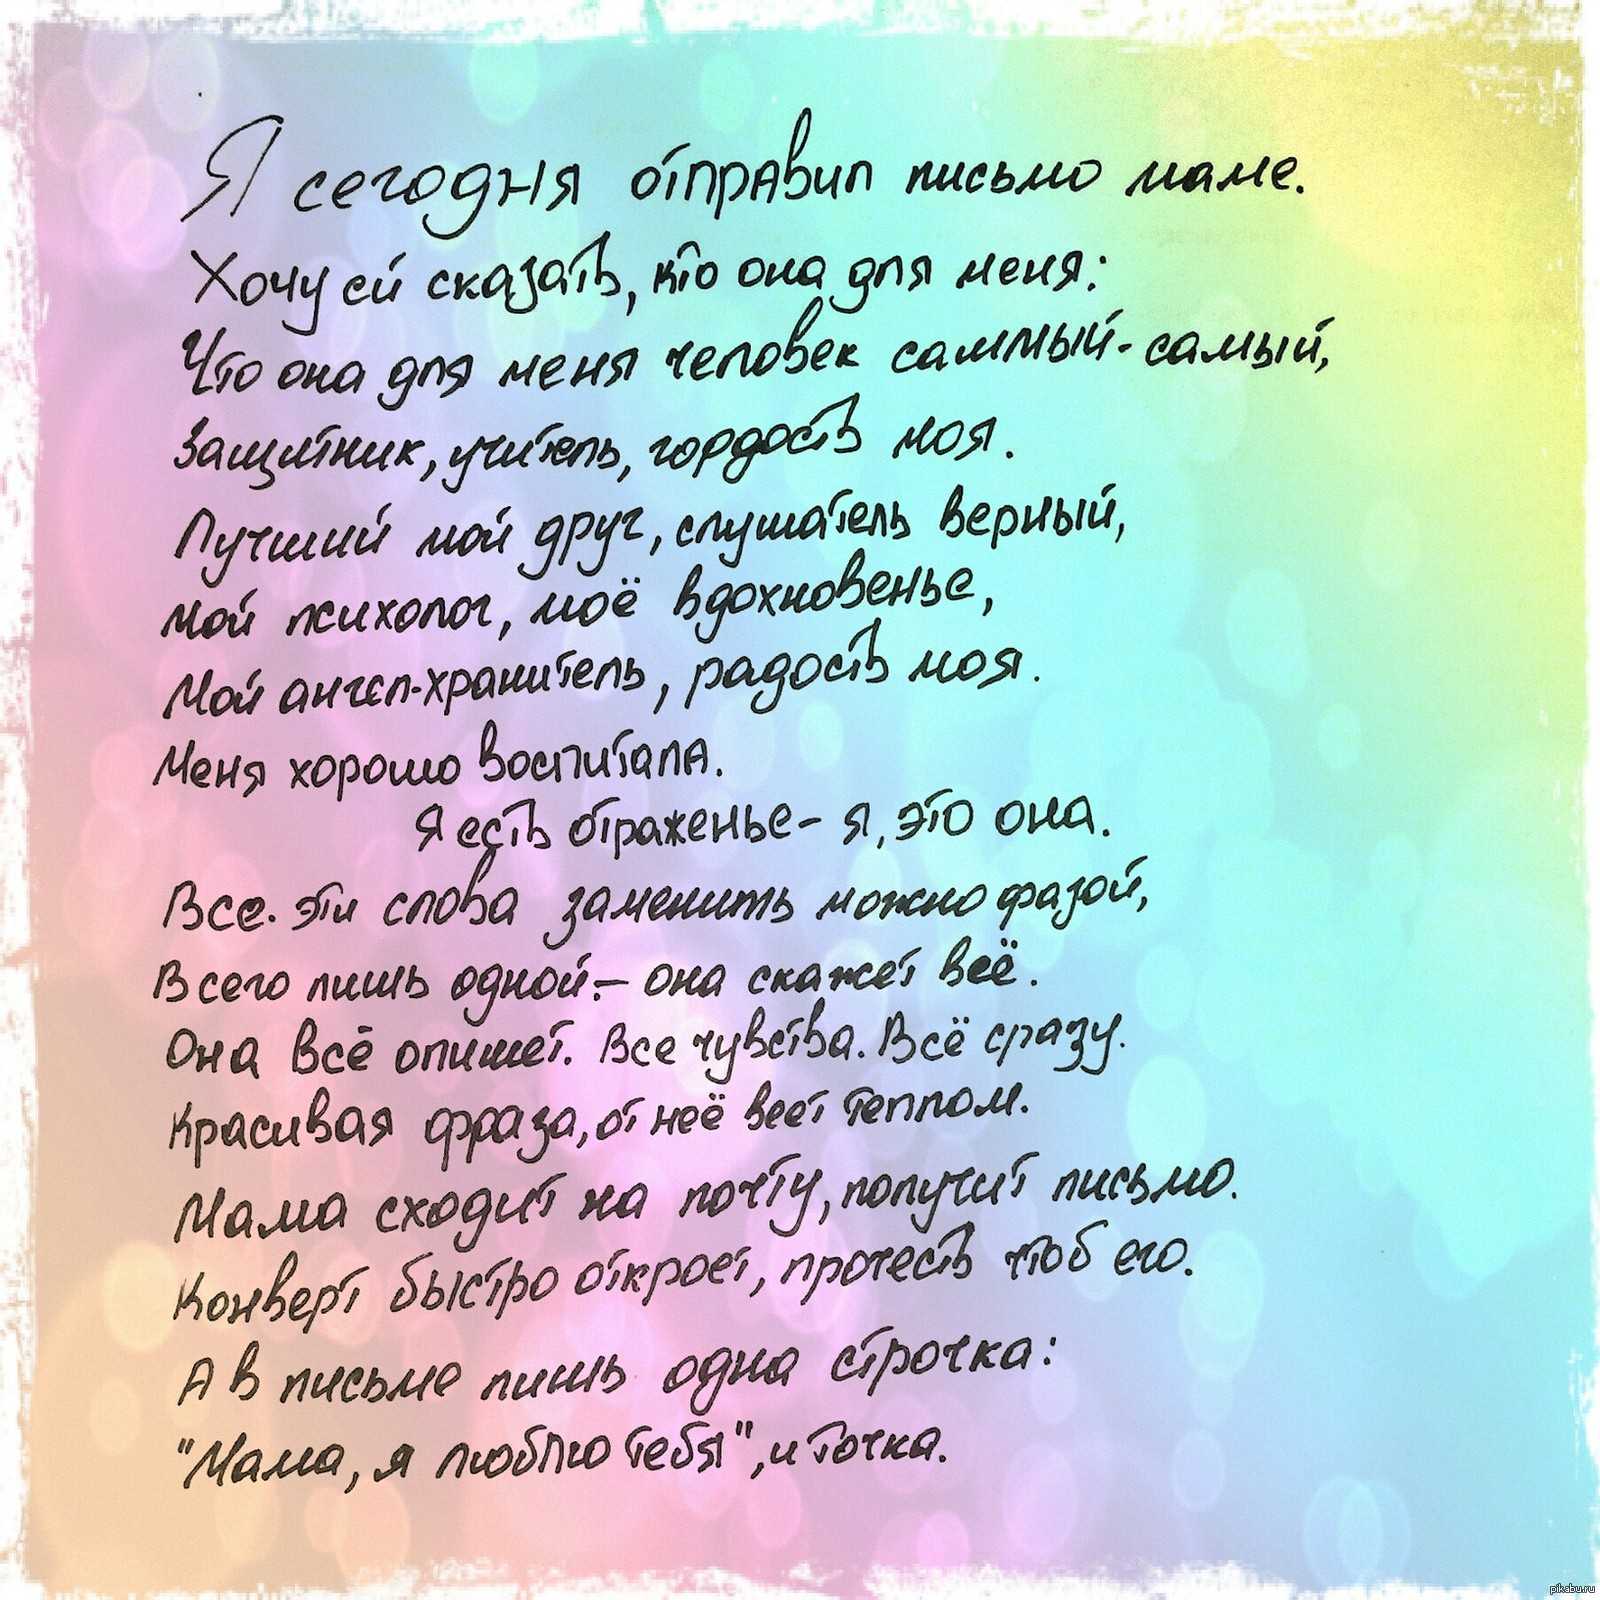 Я сегодня отправил письмо маме.
Хочу ей сказать, кто она для меня:
Что она для меня человек саммый-самый,
Защитник, учитель, гордость моя.
Лучший мой друг, слушатель верный,
Мой психолог, моё вдохновенье,
Мой ангел-хранитель, радость моя.
Меня хорошо воспитала.
Я есть отраженье - я, это она.
Все эти слова заменить можно фазой,
Всего лишь одной - она скажет всё.
Она всё опишет. Все чувства. Всё сразу.
Красивая фраза, от неё веет теплом.
Мама сходит на почту, получит письмо.
Конверт быстро откроет, прочесть чтоб его.
А в письме лишь одна строчка:
"Мама, я люблю тебя", и точка.
pikabu.ru